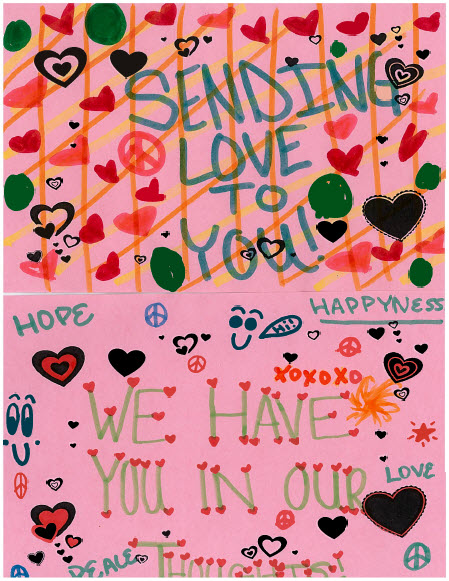 SENDING
LOVE
TO
YOU!
HOPE
HAPPYNESS
XOXOXO
WE HAVE
YOU IN OUR
LOVE
PEACE
THOUGHTS!